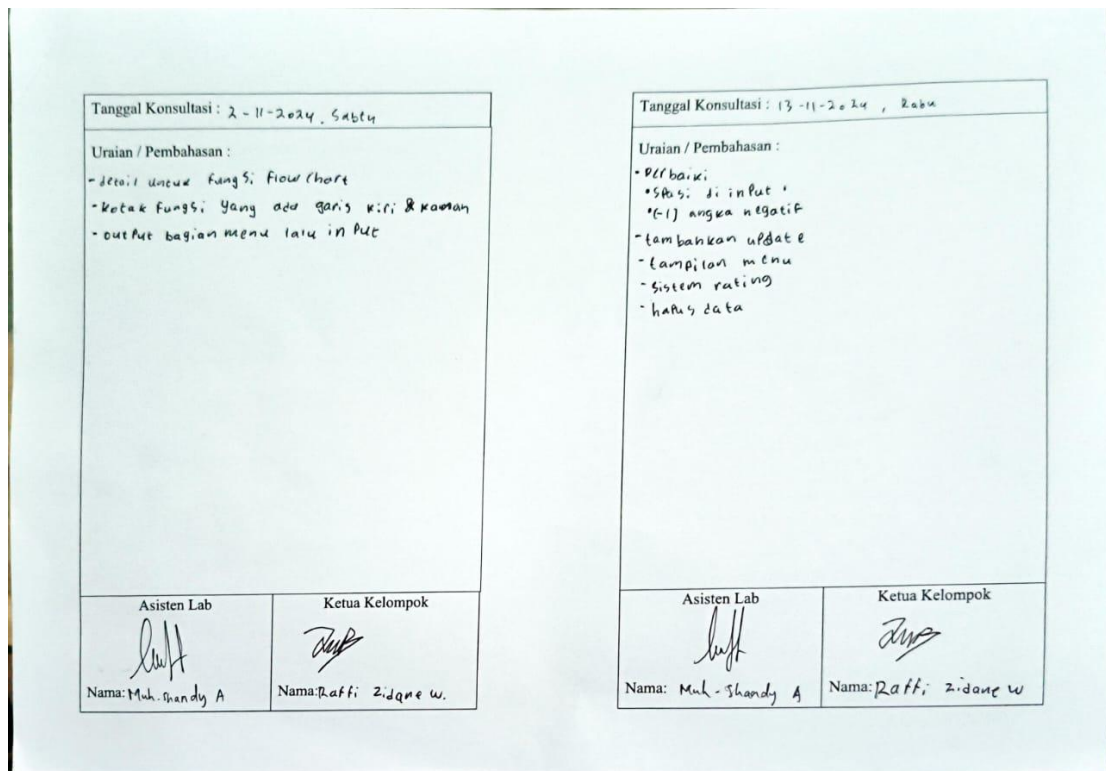 Tanggal Konsultasi : 2 - 11-2024, Sabtu
Uraian / Pembahasan :
- detail untuk fungsi flowchart
- kotak fungsi yang ada garis kiri & kanan
- output bagian menu lalu input
Asisten Lab
Ketua Kelompok
Nama: Muh. Shandy A
Nama: Raffi Zidane W.
Tanggal Konsultasi : 13 -11-2024 , Rabu
Uraian / Pembahasan :
- Perbaiki
• spasi di input '
• (-1) angka negatif
- tambahkan update
- tampilan menu
- sistem rating
- hapus data
Asisten Lab
Ketua Kelompok
Nama: Muh - Shandy A
Nama: Raffi Zidane W